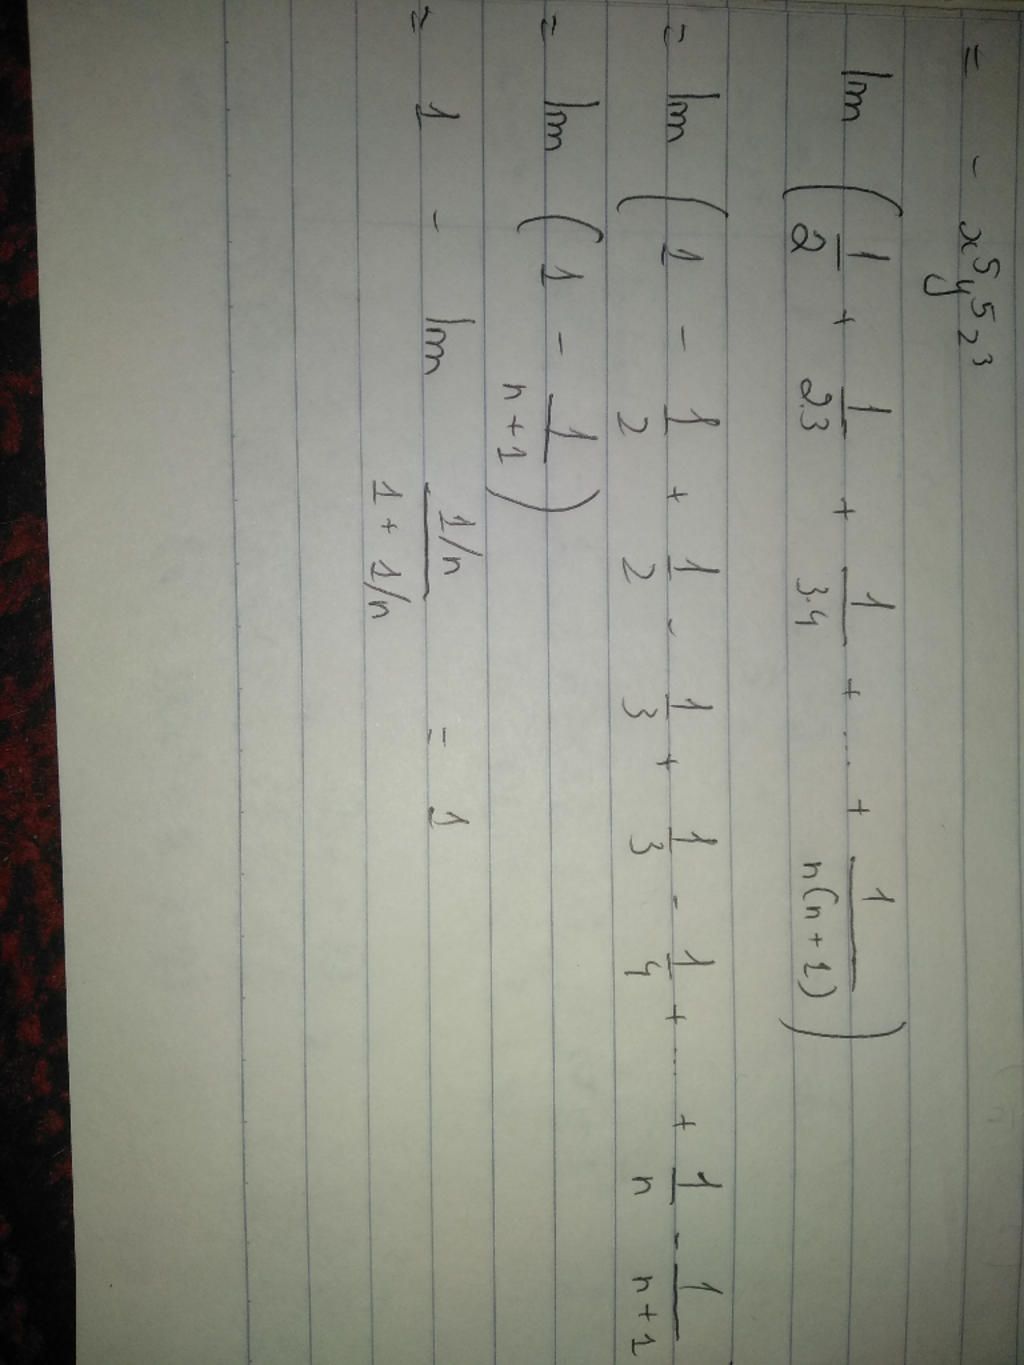 = - x⁵y⁵z³
lim ( 1/2 + 1/2.3 + 1/3.4 + .... + 1/n(n+1) )
= lim ( 1 - 1/2 + 1/2 - 1/3 + 1/3 - 1/4 + .... + 1/n - 1/n+1
= lim ( 1 - 1/n+1 )
= 1 - lim 1/n / 1 + 1/n = 1